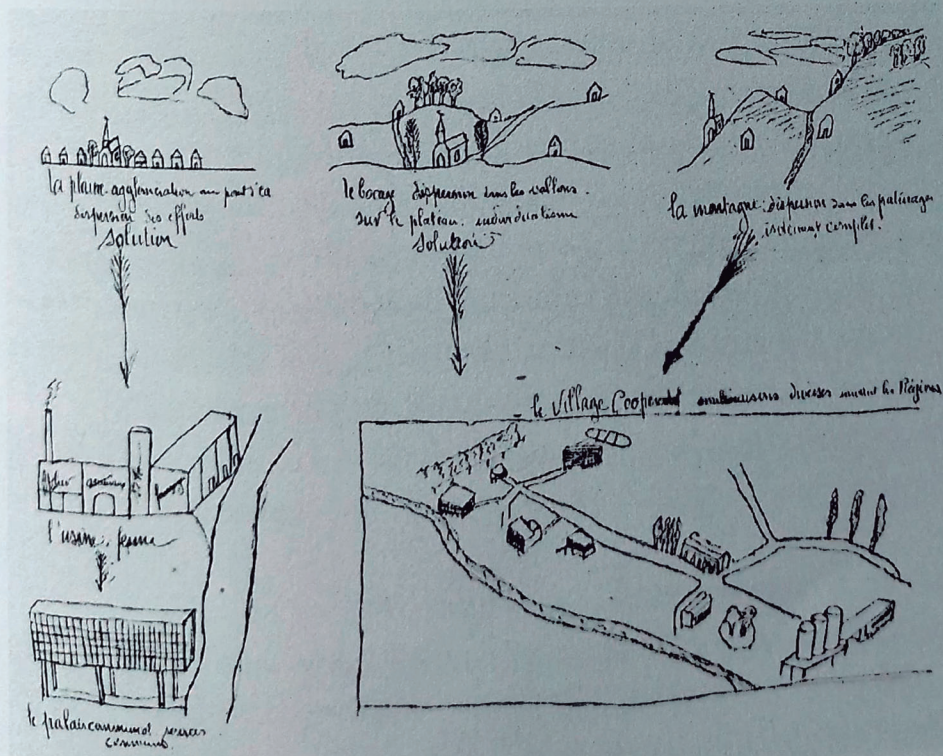 la plaine. agglomération
dispersion des efforts
Solution
le bocage dispersion dans les vallons.
sur le plateau. individualisme
Solution
la montagne: dispersion dans les pâturages
isolement complet.
le Village Coopératif diverses suivant les Régions
l'usine. ferme
le palais communal services
communs.